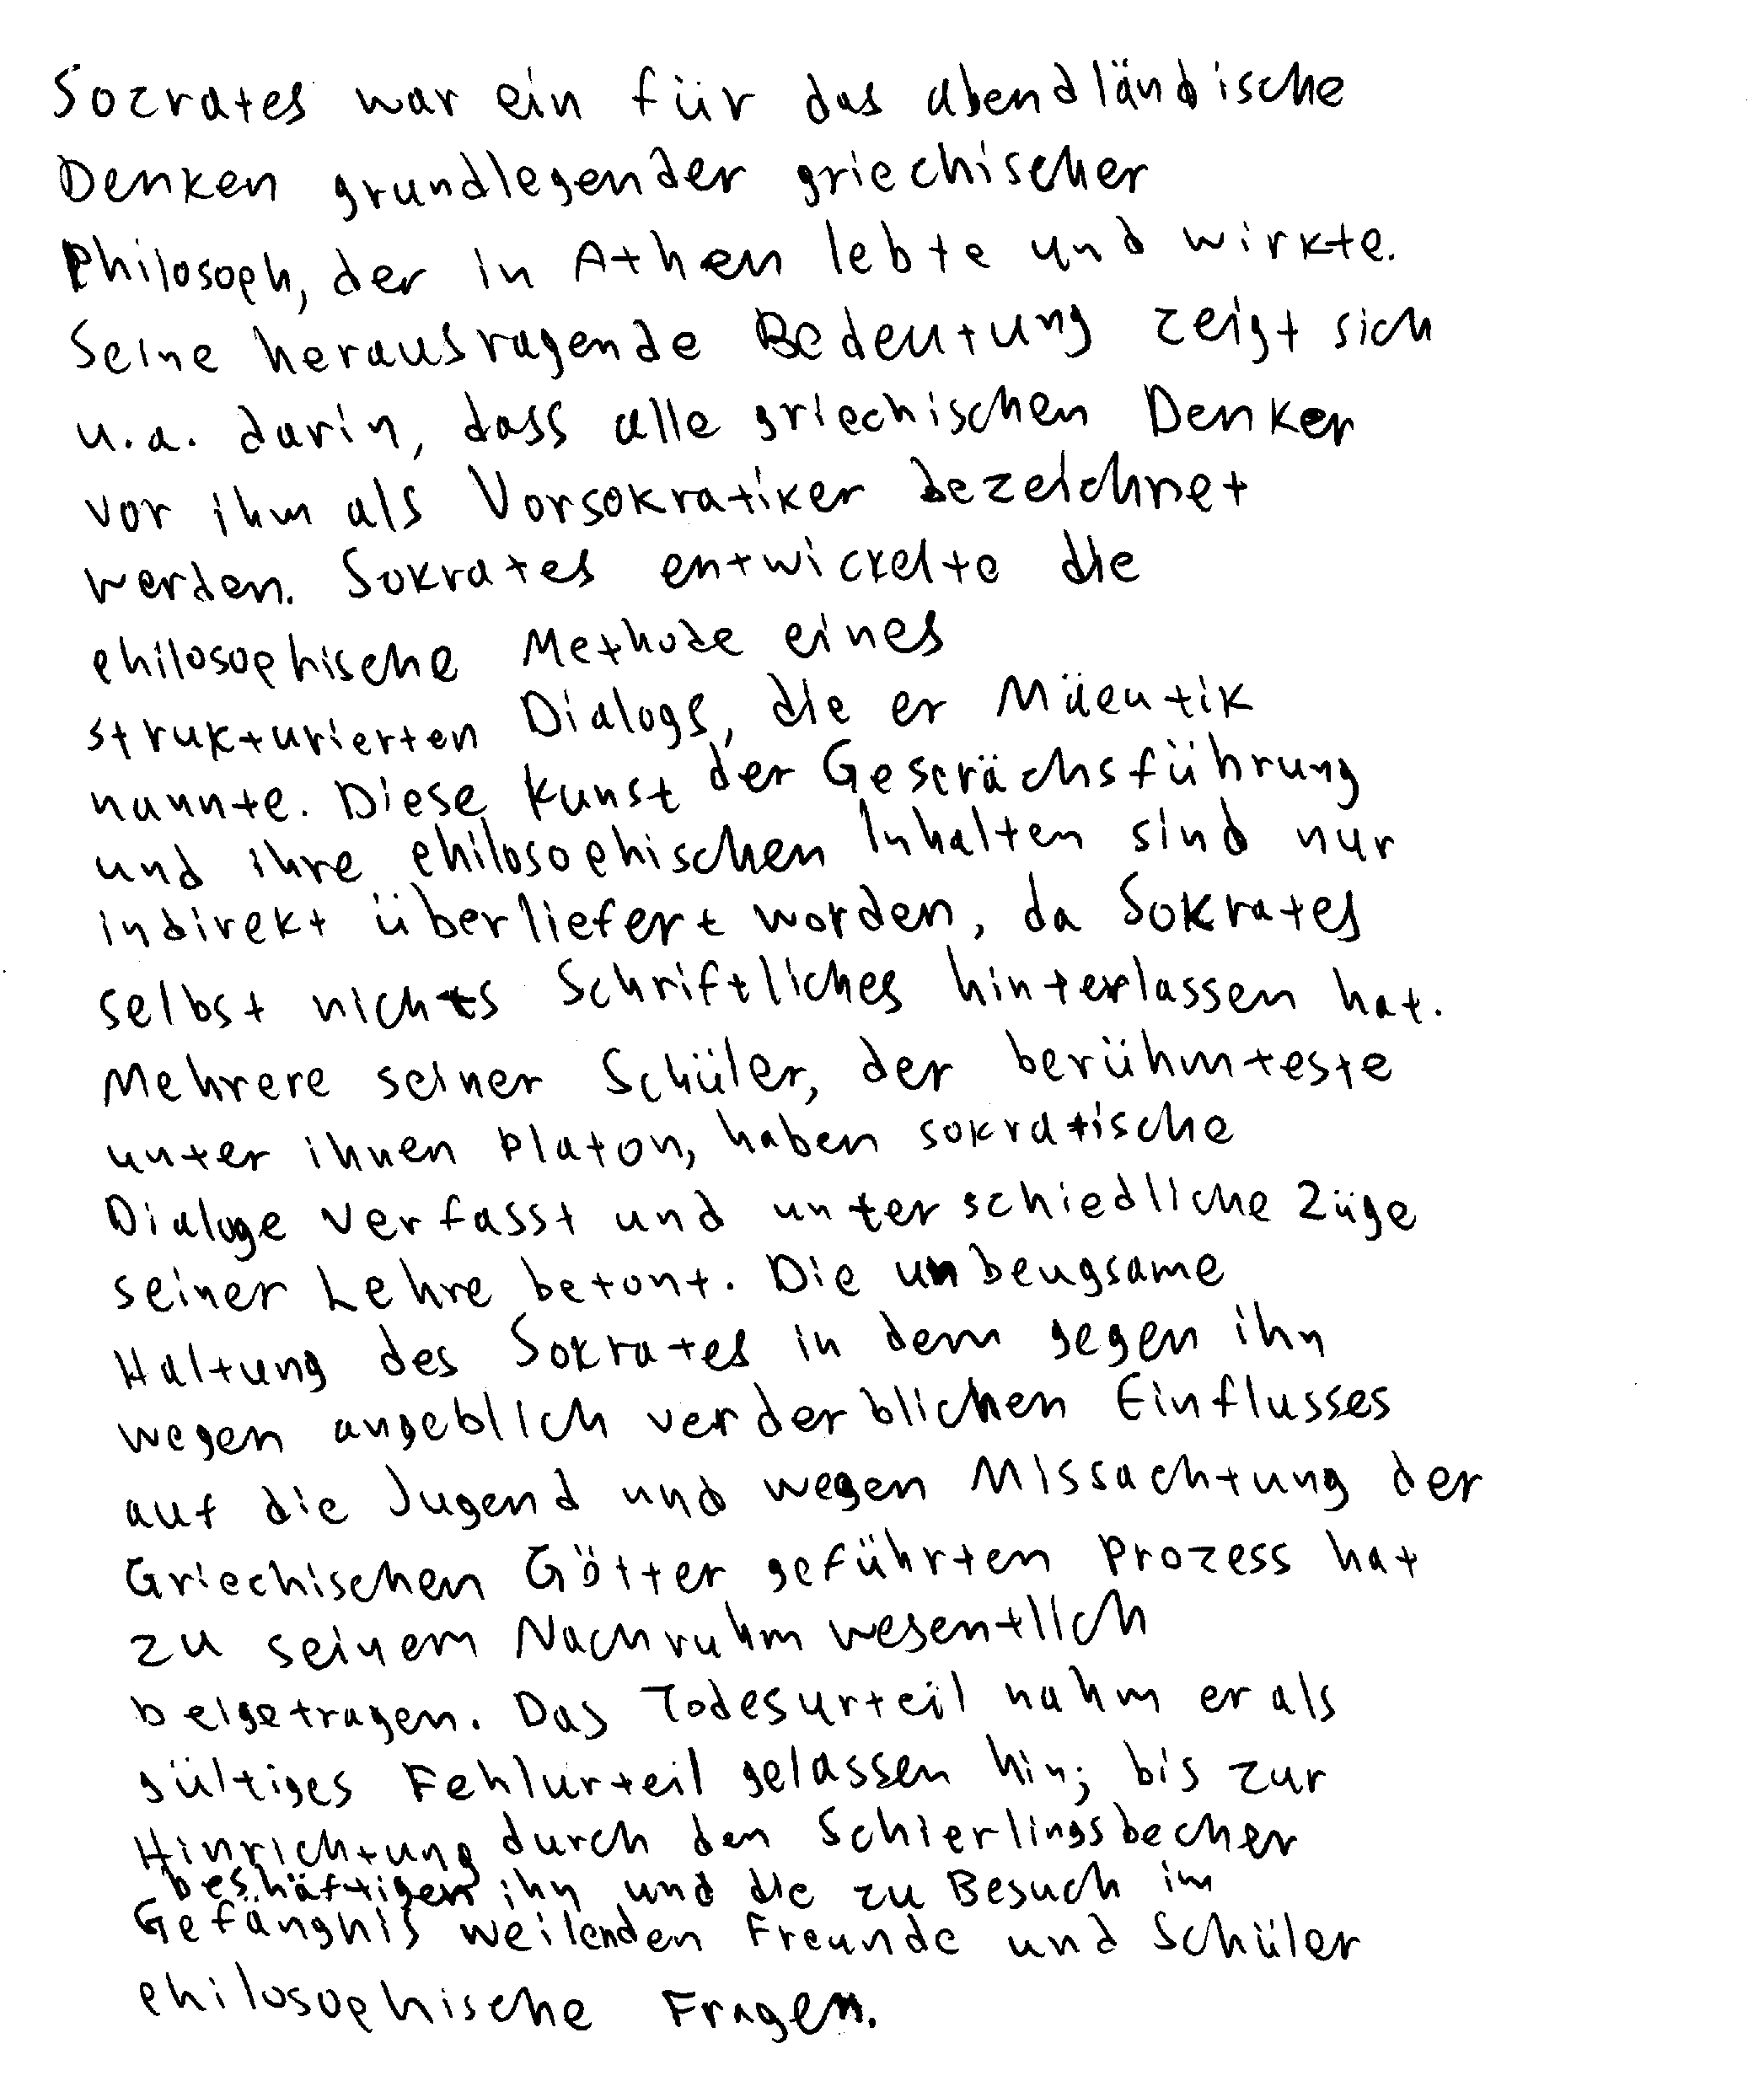 Socrates war ein für das abendländische
Denken grundlegender griechischer
Philosoph, der in Athen lebte und wirkte.
Seine herausragende Bedeutung zeigt sich
u.a. darin, dass alle griechischen Denker
vor ihm als Vorsokratiker bezeichnet
werden. Sokrates entwickelte die
philosophische Methode eines
strukturierten Dialogs, die er Mäeutik
nannte. Diese Kunst der Gesprächsführung
und ihre philosophischen Inhalten sind nur
indirekt überliefert worden, da Sokrates
selbst nichts Schriftliches hinterlassen hat.
Mehrere seiner Schüler, der berühmteste
unter ihnen Platon, haben sokratische
Dialoge verfasst und unterschiedliche Züge
seiner Lehre betont. Die unbeugsame
Haltung des Sokrates in dem gegen ihn
wegen angeblich verderblichen Einflusses
auf die Jugend und wegen Missachtung der
Griechischen Götter geführten Prozess hat
zu seinem Nachruhm wesentlich
beigetragen. Das Todesurteil nahm er als
gültiges Fehlurteil gelassen hin; bis zur
Hinrichtung durch den Schierlingsbecher
beshäftigen ihn und die zu Besuch im
Gefängnis weilenden Freunde und Schüler
philosophische Fragen.